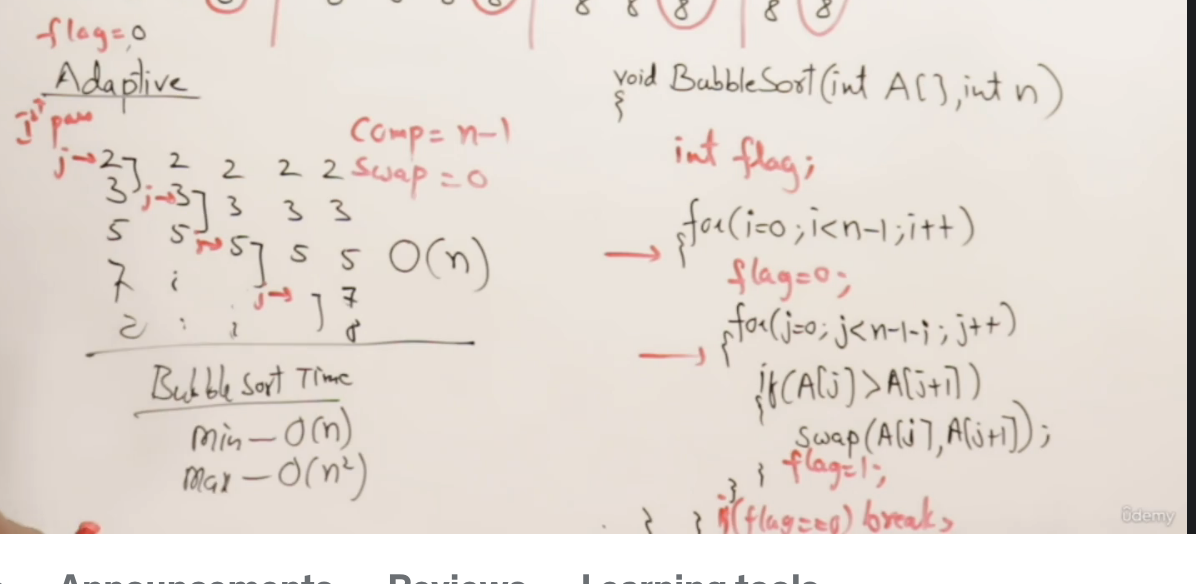 8 8 8 8 8
flag=0
Adaptive
1st pass
Comp = n-1
Swap = 0
j→ 2 2 2 2 2
3 j→ 3 3 3 3
5 5 5 5 5
7 7
8
j→
O(n)
Bubble Sort Time
Min — O(n)
Max — O(n²)
void BubbleSort(int A[],int n)
{
int flag;
for(i=0;i<n-1;i++)
{
flag=0;
for(j=0;j<n-1-i;j++)
{
if(A[j]>A[j+1])
{
swap(A[j],A[j+1]);
flag=1;
}
}
if(flag==0) break;
}
}
ûdemy
Announcements Reviews Learning tools